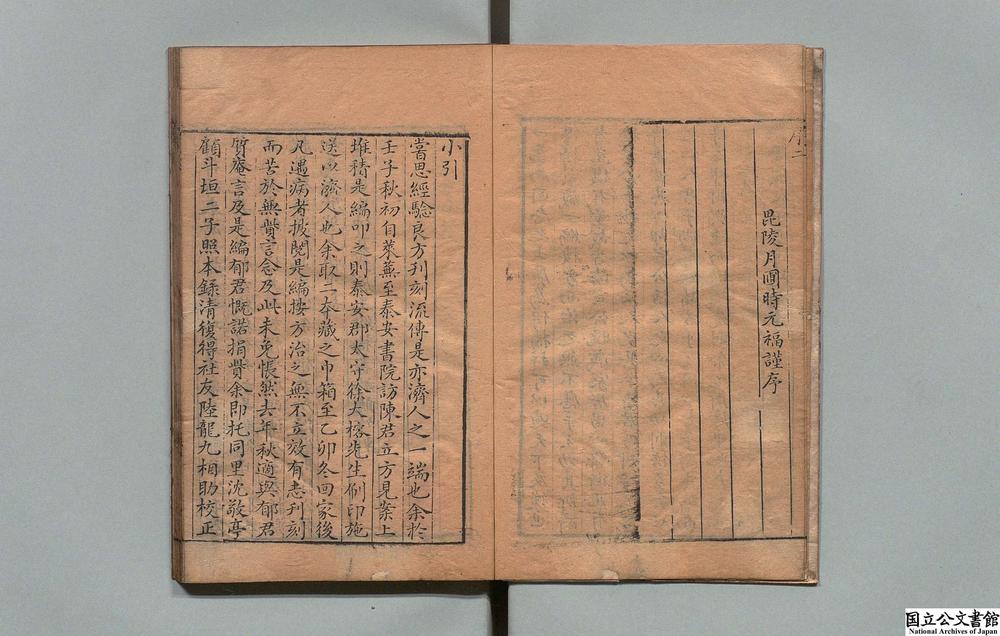 序二
毘陵月圃時元福謹序
小引
嘗思經驗良方刊刻流傳是亦濟人之一端也余於
壬子秋初自萊蕪至泰安書院訪陳君立方見案上
堆積是編叩之則泰安郡太守徐大榕先生例印施
送以濟人也余取二本藏之巾箱至乙卯冬回家後
凡遇病者披閱是編按方治之無不立效有志刊刻
而苦於無貲言念及此未免悵然去年秋適與郁君
質庵言及是編郁君慨諾捐貲余即托同里沈敬亭
顧斗垣二子照本錄清復得社友陸龍九相助校正
国立公文書館
National Archives of Japan